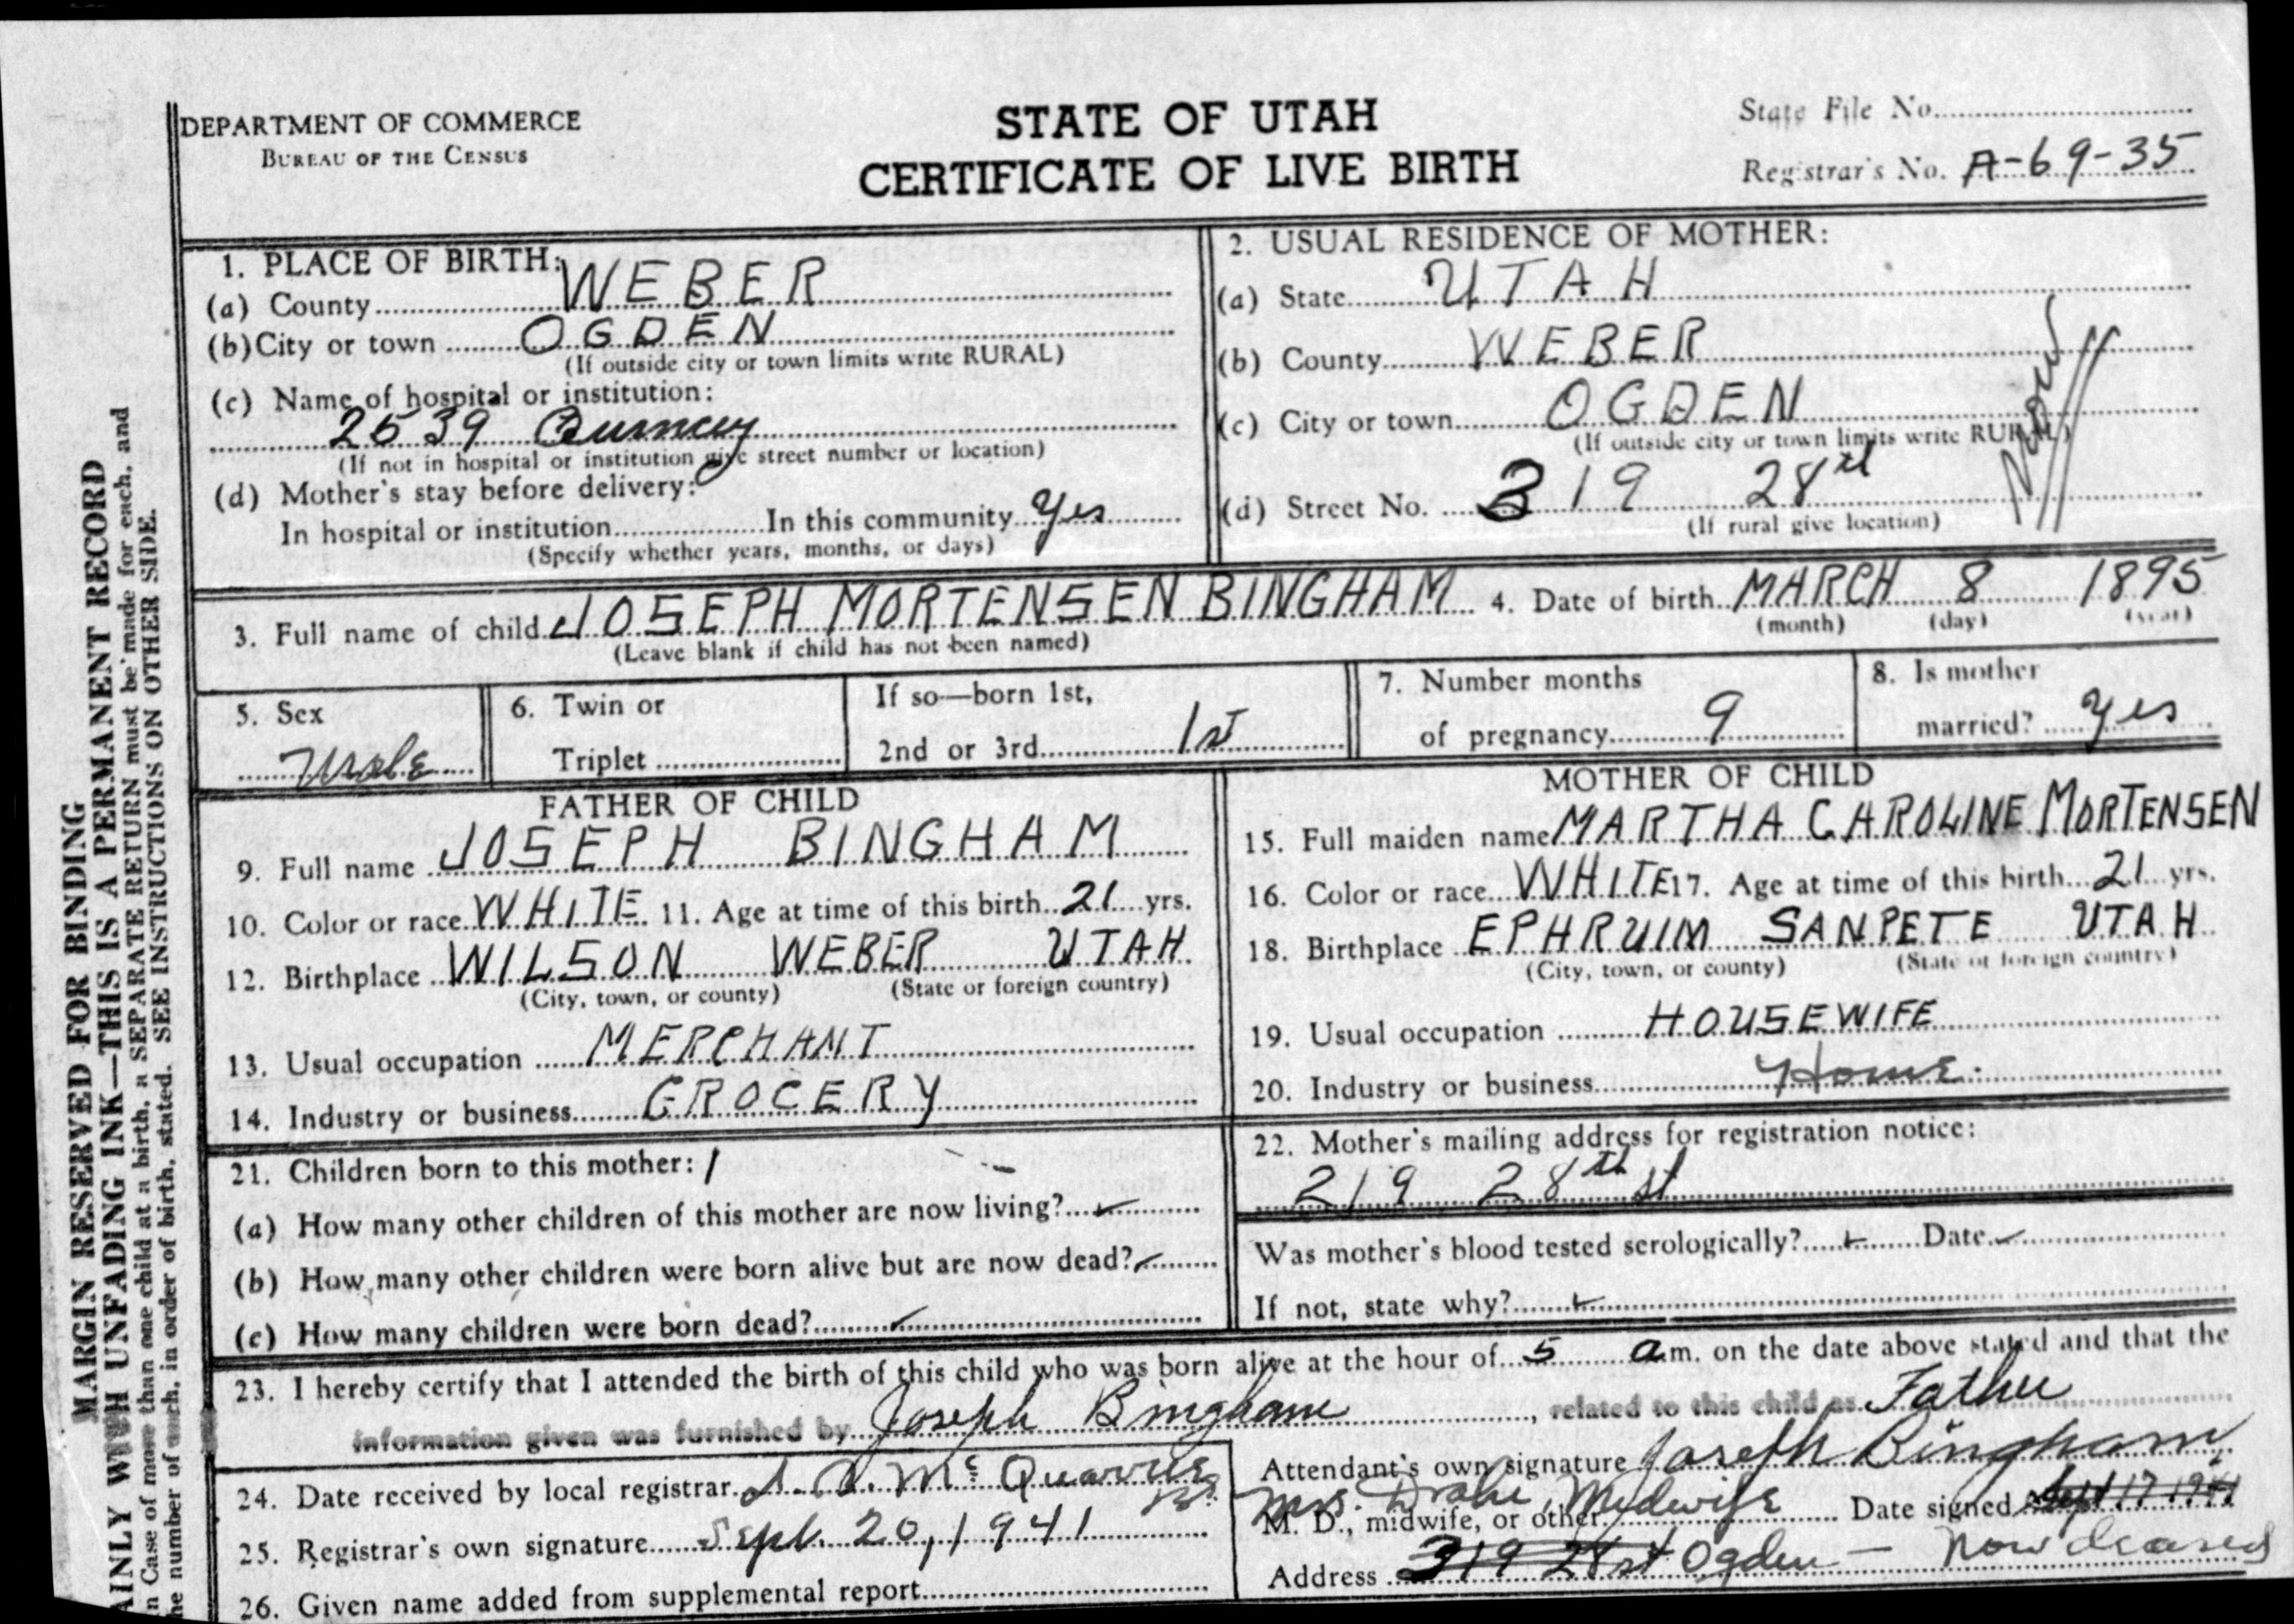 DEPARTMENT OF COMMERCE
BUREAU OF THE CENSUS
STATE OF UTAH
CERTIFICATE OF LIVE BIRTH
State File No.
Registrar's No. A-69-35
1. PLACE OF BIRTH:
(a) County WEBER
(b) City or town OGDEN
(If outside city or town limits write RURAL)
(c) Name of hospital or institution:
2639
(If not in hospital or institution give street number or location)
(d) Mother's stay before delivery:
In hospital or institution In this community yes
(Specify whether years, months, or days)
2. USUAL RESIDENCE OF MOTHER:
(a) State UTAH
(b) County WEBER
(c) City or town OGDEN
(If outside city or town limits write RURAL)
(d) Street No. 319 28th
(If rural give location)
3. Full name of child JOSEPH MORTENSEN BINGHAM 4. Date of birth MARCH 8 1895
(Leave blank if child has not been named) (month) (day) (year)
5. Sex Male
6. Twin or
Triplet
If so—born 1st,
2nd or 3rd 1st
7. Number months
of pregnancy 9
8. Is mother
married? yes
FATHER OF CHILD
9. Full name JOSEPH BINGHAM
10. Color or race WHITE 11. Age at time of this birth 21 yrs.
12. Birthplace WILSON WEBER UTAH
(City, town, or county) (State or foreign country)
13. Usual occupation MERCHANT
14. Industry or business GROCERY
MOTHER OF CHILD
15. Full maiden name MARTHA CAROLINE MORTENSEN
16. Color or race WHITE 17. Age at time of this birth 21 yrs.
18. Birthplace EPHRUIM SANPETE UTAH
(City, town, or county) (State or foreign country)
19. Usual occupation HOUSEWIFE
20. Industry or business Home
21. Children born to this mother: 1
(a) How many other children of this mother are now living?
(b) How many other children were born alive but are now dead?
(c) How many children were born dead?
22. Mother's mailing address for registration notice:
219 28th st
Was mother's blood tested serologically? Date
If not, state why?
23. I hereby certify that I attended the birth of this child who was born alive at the hour of 5 a.m. on the date above stated and that the
information given was furnished by Joseph Bingham, related to this child as Father
24. Date received by local registrar
25. Registrar's own signature Sept. 20, 1941
26. Given name added from supplemental report
Attendant's own signature Joseph Bingham
Mrs. Drake, Mydwife
M. D., midwife, or other Date signed Sept 17 1941
Address 319 28 st Ogden — now deceased
MARGIN RESERVED FOR BINDING
AINLY WITH UNFADING INK—THIS IS A PERMANENT RECORD
n Case of more than one child at a birth, a SEPARATE RETURN must be made for each, and
he number of each, in order of birth, stated. SEE INSTRUCTIONS ON OTHER SIDE.